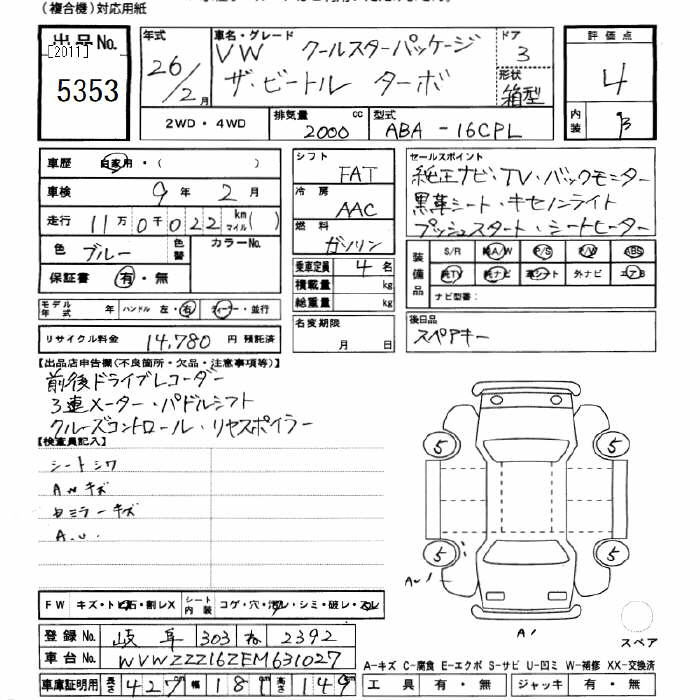 (複合機)対応用紙
出品No.
[2011]
5353
年式
26/2月
車名・グレード
VW クールスターパッケージ
ザ・ビートル ターボ
ドア
3
形状
箱型
評価点
4
内装
B
2WD・4WD
排気量
2000 cc
型式
ABA-16CPL
車歴 自家用・( )
車検 9年 2月
走行 11万0千022 km マイル( )
色 ブルー 色替 カラーNo.
保証書 有・無
モデル年式 年 ハンドル 左・右 ディーラー・並行
リサイクル料金 14,780 円 預託済
シフト FAT
冷房 AAC
燃料 ガソリン
乗車定員 4 名
積載量 kg
総重量 kg
名変期限
月 日
セールスポイント
純正ナビ・TV・バックモニター
黒革シート・キセノンライト
プッシュスタート・シートヒーター
装備品
S/R 純A/W P/S P/W ABS
純TV 純ナビ 革シート 外ナビ エアB
ナビ型番:
後日品
スペアキー
【出品店申告欄(不良箇所・欠品・注意事項等)】
前後ドライブレコーダー
3連メーター・パドルシフト
クルーズコントロール・リヤスポイラー
【検査員記入】
シートシワ
AWキズ
右ミラーキズ
A.U.
5
5
5
5
A1
スペア
FW キズ・トビ石・割レX
シート内装 コゲ・穴・汚レ・シミ・破レ・スレ
登録No. 岐阜 303 ね 2392
車台No. WVWZZZ16ZEM631027
車庫証明用 長さ 427 幅 181 高さ 149
A-キズ C-腐食 E-エクボ S-サビ U-凹ミ W-補修 XX-交換済
工具 有・無 ジャッキ 有・無